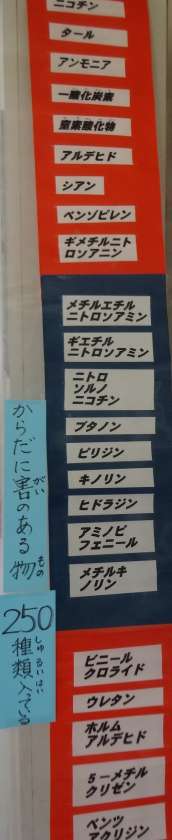 ニコチン
タール
アンモニア
一酸化炭素
窒素酸化物
アルデヒド
シアン
ベンゾピレン
ギメチルニト
ロソアニン
メチルエチル
ニトロソアミン
ギエチル
ニトロソアミン
ニトロ
ソルノ
ニコチン
ブタノン
ピリジン
キノリン
ヒドラジン
アミノビ
フェニール
メチルキ
ノリン
ビニール
クロライド
ウレタン
ホルム
アルデヒド
5-メチル
クリゼン
ベンツ
アクリジン
からだに害のある物
がい
もの
250
種類入っている
しゅるいはい